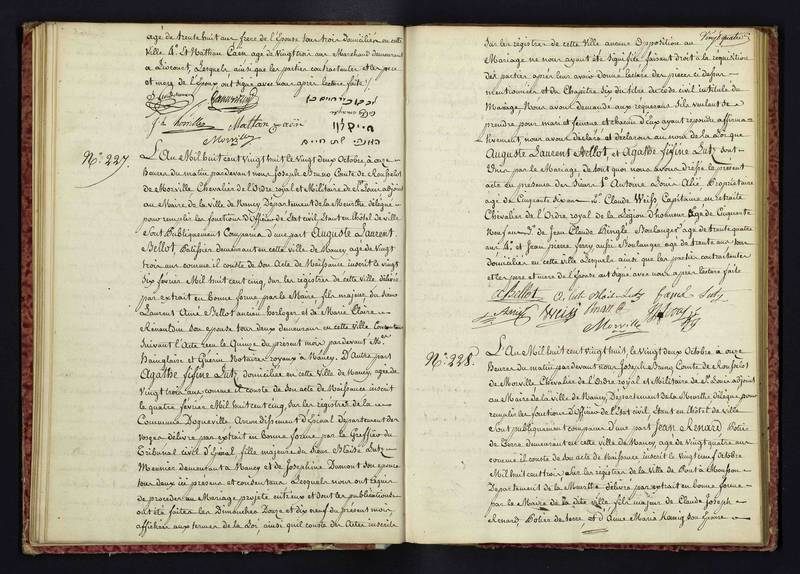 agé de trente huit ans frere de l'Epouse tous trois domiciliés en cette
Ville 4.° Lt Nathan Caën agé de Vingt trois ans Marchand demeurant
a Lixcourt, Lesquels ainsi que les parties contractantes et les pere
et mere de l'Epoux ont signé avec nous après lecture faite
Mathan Caën
Morville
N.° 227.
L'An Mil huit cent Vingt huit le Vingt deux Octobre, à onze
heures du matin pardevant nous Joseph Bruno Comte de Rousselot
de Morville, Chevalier de l'Ordre royal et Militaire de S.t Louis adjoint
au Maire de la Ville de Nancy Département de la Meurthe délégué
pour remplir les fonctions d'Officier de l'Etat civil, Etant en l'hôtel de ville
Sont Publiquement Comparus D'une part Auguste Laurent
Bellot Patissier demeurant en cette ville de Nancy agé de Vingt
trois ans comme il conste de Son Acte de Naissance inscrit le vingt
Six fevrier Mil huit cent cinq, Sur les régistres de cette Ville délivré
par extrait en bonne forme par le Maire fils majeur du Sieur
Laurent Aimé Bellot ancien horloger, et de Marie Claire
Renard son epouse tous deux demeurant en cette Ville
Suivant l'Acte reçu le Quinze du présent mois pardevant M.e
et Guérin Notaires royaux à Nancy. D'Autre part
Agathe fifine Lutz domiciliée en cette Ville de Nancy agée de
Vingt trois ans comme il conste de son acte de Naissance inscrit
le quatre fevrier Mil huit cent cinq, Sur les régistres de la
Commune Dogneville, Arrondissement d'Epinal Département des
Vosges délivré par extrait en bonne forme par le Greffier du
Tribunal civil d'Epinal, fille majeure du Sieur Blaise Lutz
Meunier demeurant à Nancy et de Josephine Dumont Son epouse
tous deux ici présens et consentans. Lesquels nous ont requis
de procéder au Mariage projeté entr'eux et dont les publications
ont été faites les Dimanches Douze et dix neuf du présent mois,
affichées aux termes de la Loi, ainsi qu'il conste des Actes inscrits
Vingt quatre
Sur les régistres de cette Ville aucune Opposition au
Mariage ne nous ayant été Signifiée, faisant droit à la réquisition
des parties après leur avoir donné lecture des pièces ci dessus
mentionnées et du Chapitre Six du titre du code civil intitulé du
Mariage Nous avons demandé aux requerans S'ils veulent se
prendre pour mari et femme et chacun d'Eux ayant répondu affirma-
tivement, nous avons déclaré et déclarons au nom de la Loi que
Auguste Laurent Bellot, et Agathe fifine Lutz Sont
Unis par le Mariage, de tout quoi nous avons dressé le présent
acte en présence des Sieurs 1.° Antoine Louis Alié Propriétaire
agé de Cinquante Six ans 2.° Claude Weiss Capitaine en retraite
Chevalier de l'Ordre royal de la Légion d'honneur agé de Cinquante
Neuf ans 3.° de Jean Claude Pingle Boulanger agé de trente quatre
ans 4.° et Jean pierre ferry aussi Boulanger agé de trente ans tous
domiciliés en cette ville Lesquels ainsi que les parties contractantes
et les pere et mere de l'Epouse ont signé avec nous après lecture faite
A Bellot
Weiss
Morville
N.° 228.
L'An Mil huit cent Vingt huit, le Vingt deux Octobre à onze
Heures du matin pardevant nous Joseph Bruno Comte de Rousselot
de Morville, Chevalier de l'Ordre royal et Militaire de S.t Louis adjoint
au Maire de la Ville de Nancy, Département de la Meurthe délégué pour
remplir les fonctions d'Officier de l'Etat civil, Etant en l'hôtel de ville
Sont publiquement comparus d'une part Jean Renard Potier
de Terre demeurant en cette ville de Nancy agé de Vingt quatre ans
comme il conste de son acte de Naissance inscrit le Vingt neuf Octobre
Mil huit cent trois, Sur les régistres de la Ville de Pont à Mousson
Département de la Meurthe délivré par extrait en bonne forme
par le Maire de la dite ville fils majeur de Claude Joseph
Renard Potier de terre et d'Anne Marie Kanig son Epouse